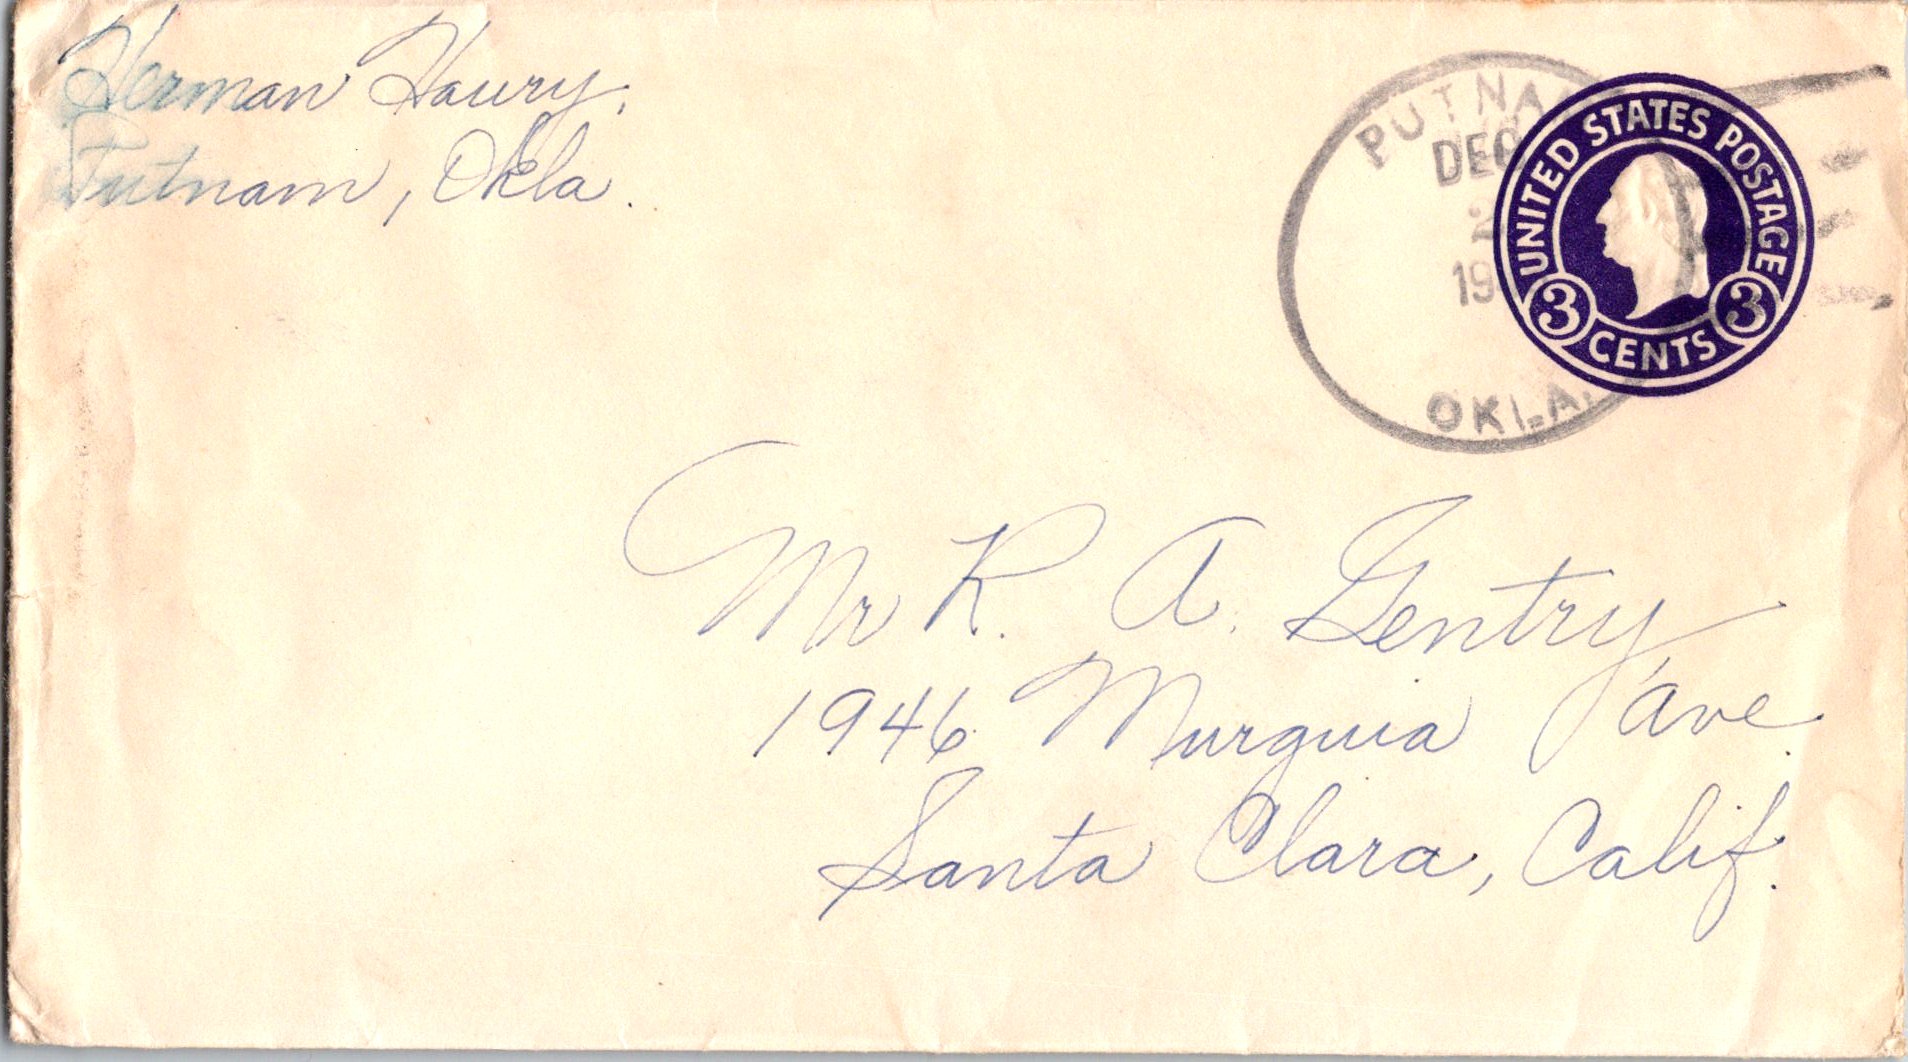 Herman Haury.
Putnam, Okla.
PUTNAM
DEC
2
19
OKLA.
UNITED STATES POSTAGE
3 CENTS 3
Mr R. A. Gentry
1946 Murguia Ave.
Santa Clara, Calif.